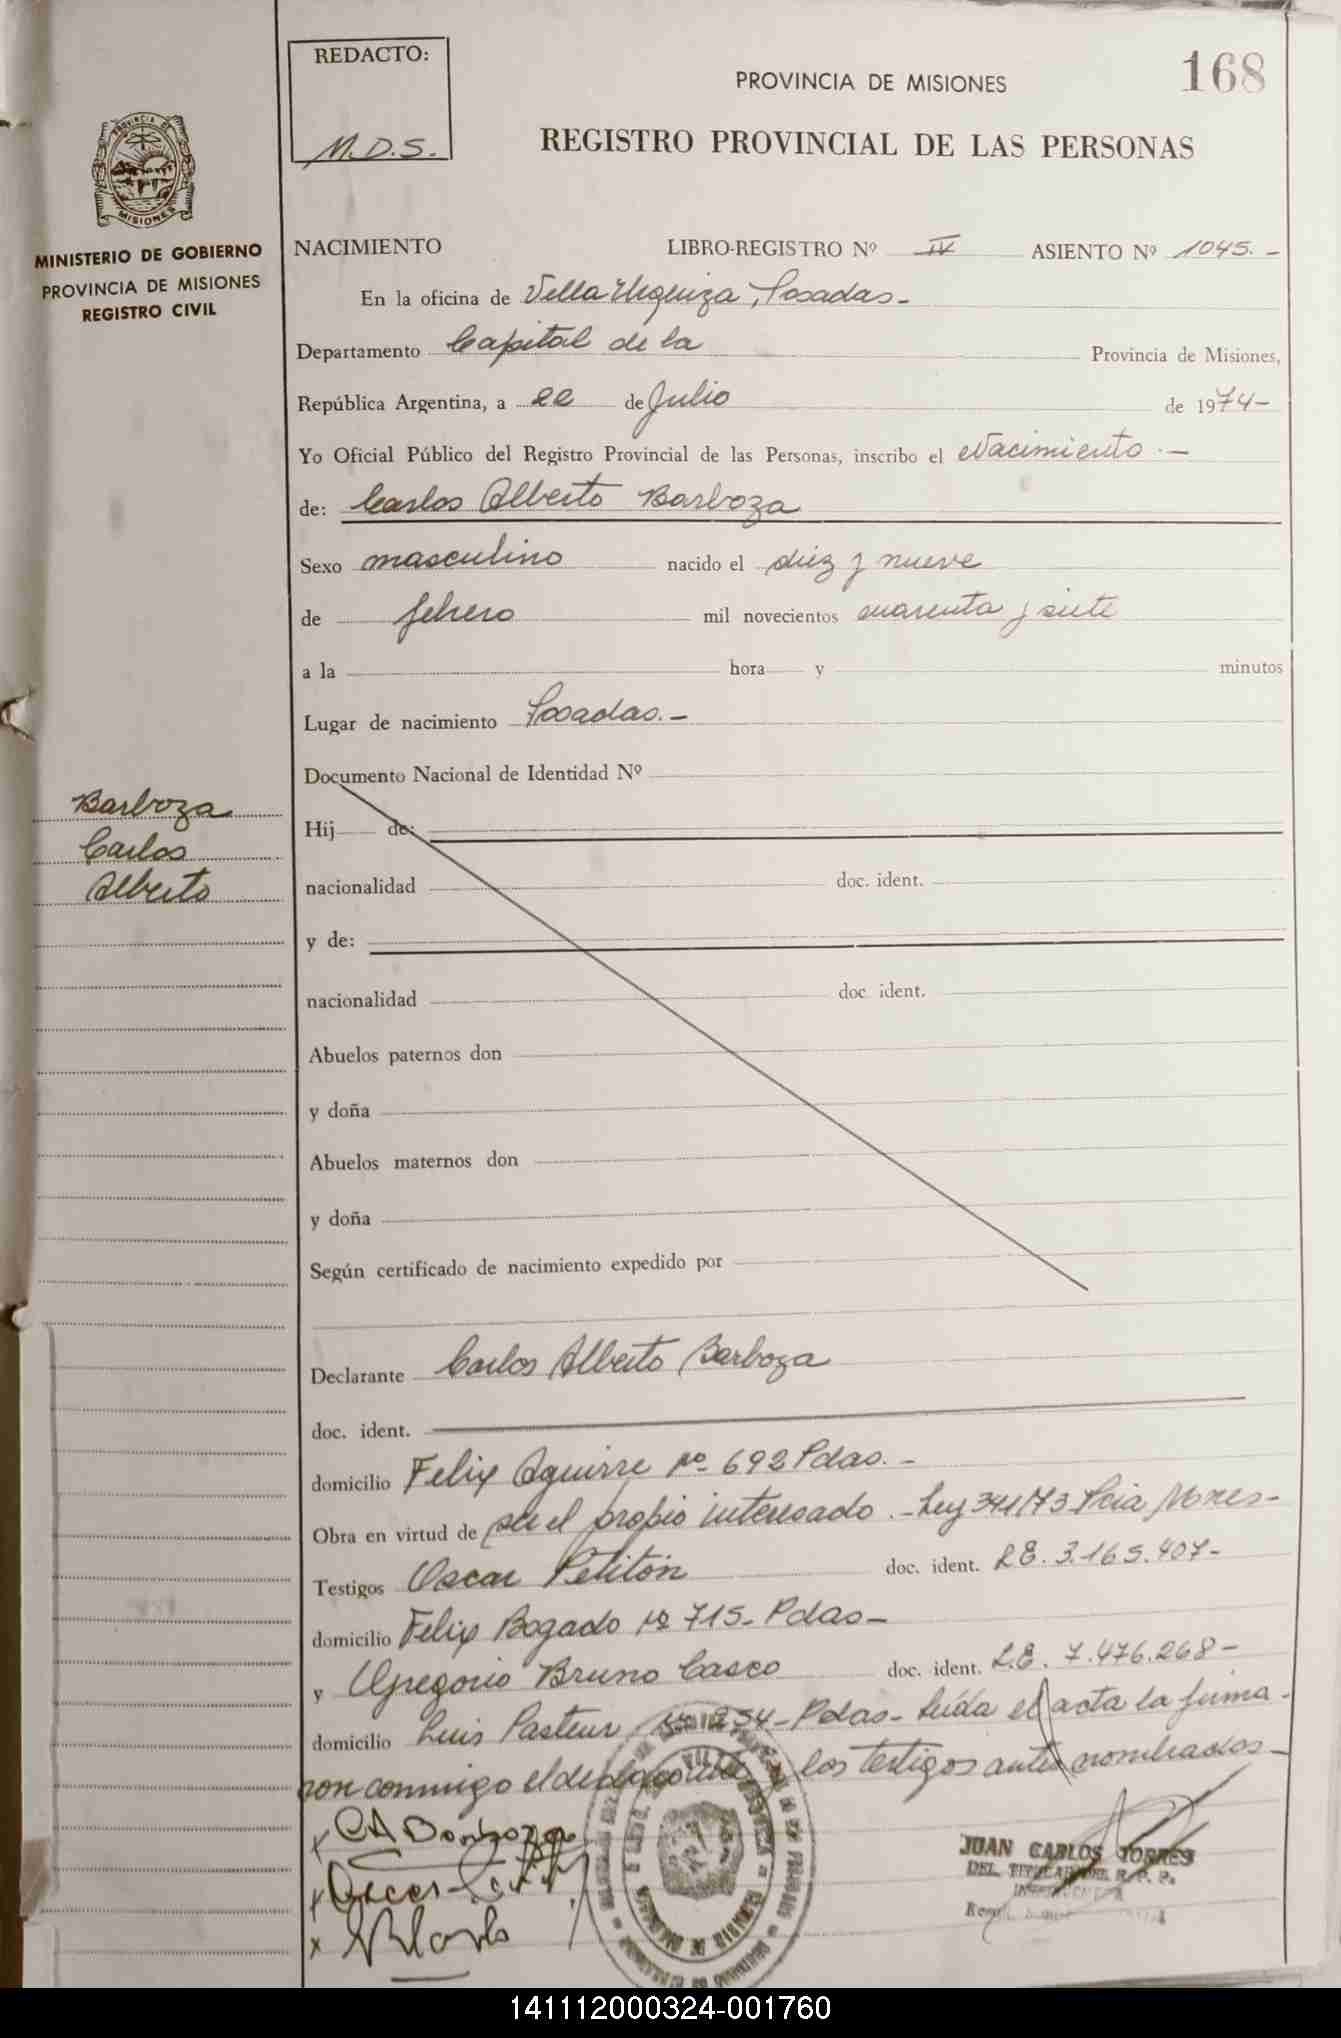 REDACTO:
M.D.S.
168
PROVINCIA DE MISIONES
REGISTRO PROVINCIAL DE LAS PERSONAS
PROVINCIA DE
MISIONES
MINISTERIO DE GOBIERNO
PROVINCIA DE MISIONES
REGISTRO CIVIL
NACIMIENTO LIBRO-REGISTRO Nº IV ASIENTO Nº 1045.-
En la oficina de Villa Urquiza, Posadas-
Departamento Capital de la Provincia de Misiones,
República Argentina, a 22 de Julio de 1974-
Yo Oficial Público del Registro Provincial de las Personas, inscribo el Nacimiento.-
de: Carlos Alberto Barboza
Sexo masculino nacido el diez y nueve
de febrero mil novecientos cuarenta y siete
a la hora y minutos
Lugar de nacimiento Posadas.-
Documento Nacional de Identidad Nº
Barboza
Carlos
Alberto
Hij de:
nacionalidad doc. ident.
y de:
nacionalidad doc. ident.
Abuelos paternos don
y doña
Abuelos maternos don
y doña
Según certificado de nacimiento expedido por
Declarante Carlos Alberto Barboza
doc. ident.
domicilio Felix Aguirre Nº 692 Pdas.-
Obra en virtud de ser el propio interesado.-Ley 341/73 Pcia Mnes-
Testigos Oscar Petitón doc. ident. L.E. 3.165.407-
domicilio Felix Bogado Nº 715- Pdas-
y Gregorio Bruno Casco doc. ident. L.E. 7.476.268-
domicilio Luis Pasteur Nº 254-Pdas- Leída el acta la firma-
ron conmigo el declarante y los testigos ante nombrados-
x CA Barboza
x Oscar
x
JUAN CARLOS TORRES
DEL. TITULAR DEL R. P. P.
141112000324-001760